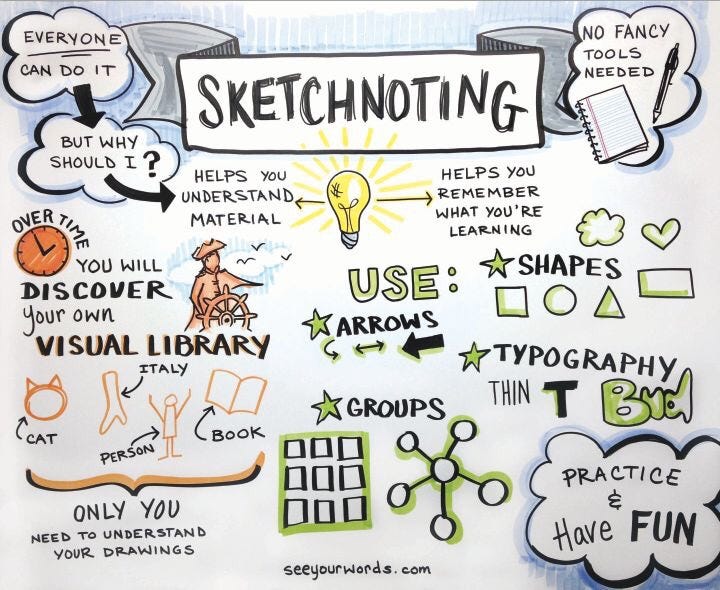 EVERYONE
CAN DO IT
SKETCHNOTING
NO FANCY
TOOLS
NEEDED
BUT WHY
SHOULD I ?
HELPS YOU
UNDERSTAND
MATERIAL
HELPS YOU
REMEMBER
WHAT YOU'RE
LEARNING
OVER TIME
YOU WILL
DISCOVER
your own
VISUAL LIBRARY
CAT
ITALY
PERSON
BOOK
ONLY YOU
NEED TO UNDERSTAND
YOUR DRAWINGS
USE:
ARROWS
SHAPES
TYPOGRAPHY
THIN T
GROUPS
PRACTICE
&
Have FUN
seeyourwords.com